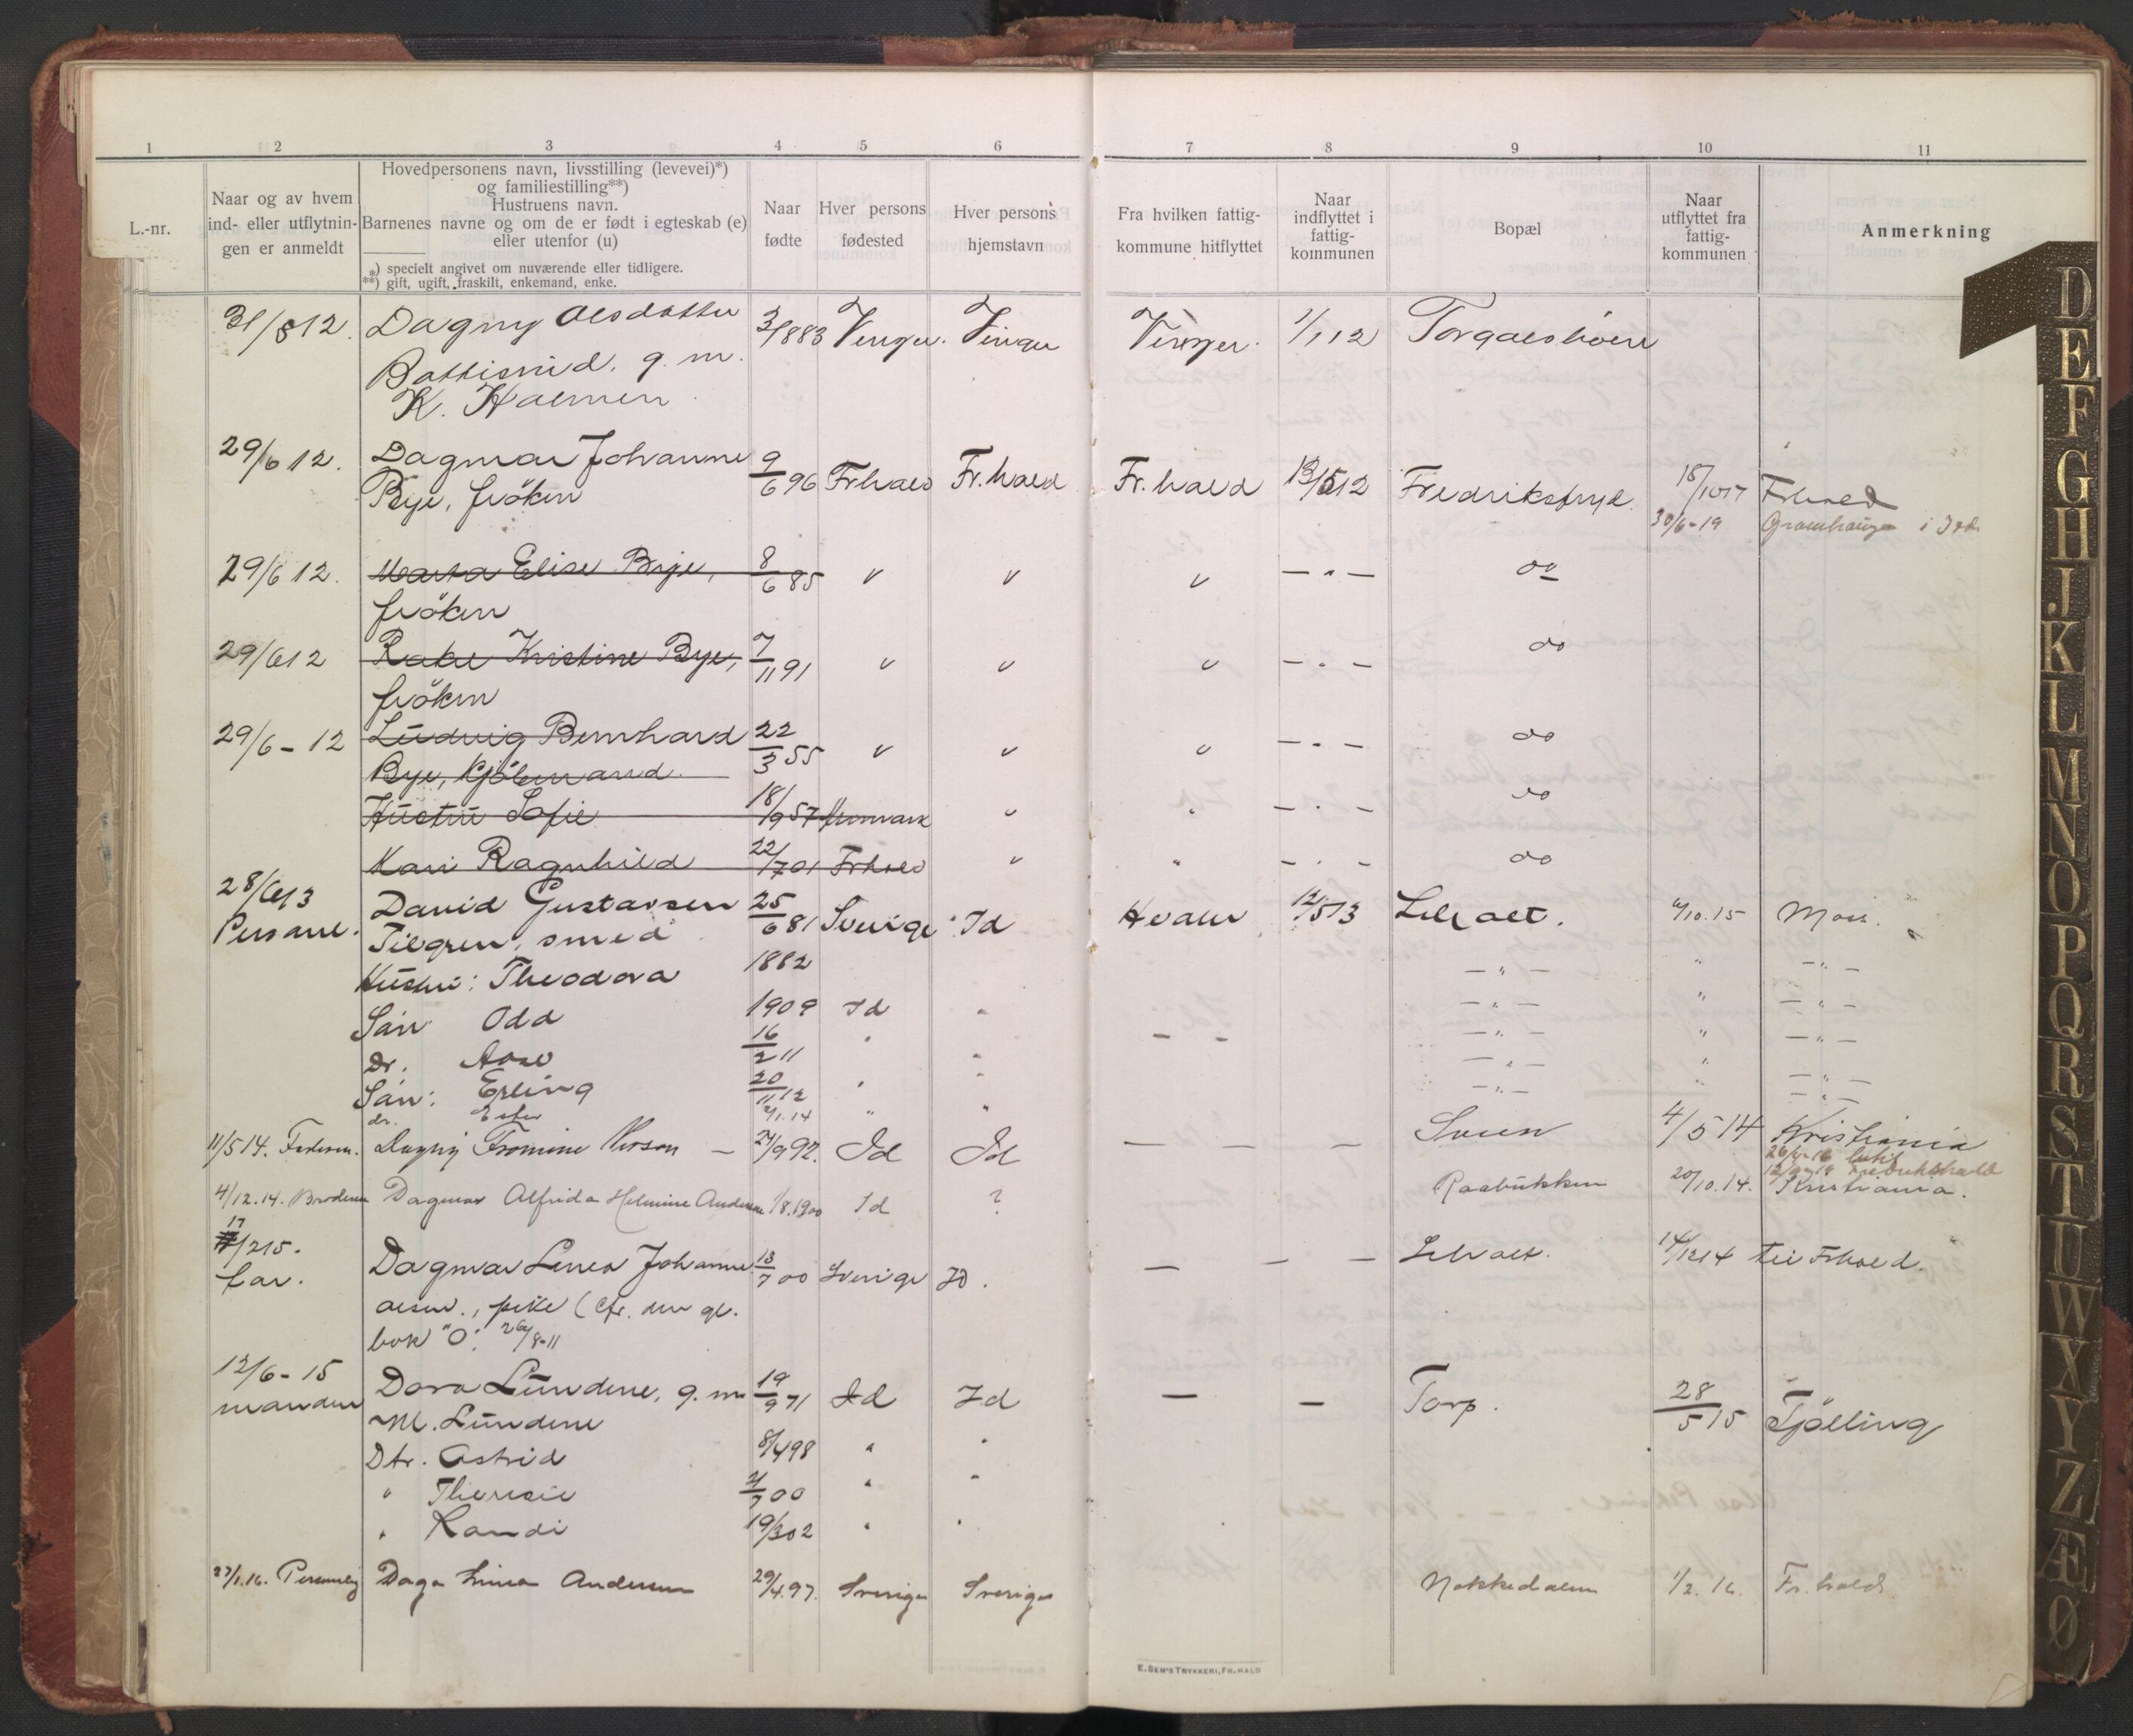 1 2 3 4 5 6 7 8 9 10 11
L.-nr.
Naar og av hvem
ind- eller utflytnin-
gen er anmeldt
Hovedpersonens navn, livsstilling (levevei)*)
og familiestilling**)
Hustruens navn.
Barnenes navne og om de er født i egteskab (e)
eller utenfor (u)
*) specielt angivet om nuværende eller tidligere.
**) gift, ugift, fraskilt, enkemand, enke.
Naar
fødte
Hver persons
fødested
Hver persons
hjemstavn
Fra hvilken fattig-
kommune hitflyttet
Naar
indflyttet i
fattig-
kommunen
Bopæl
Naar
utflyttet fra
fattig-
kommunen
Anmerkning
31/8 12. Dagny Olsdatter 3/ 883 Vinger. Vinger Vinger. 1/1 12
g. m.
K. Holmen
29/6 12. Dagmar Johanne 9/6 96 Fr.hald Fr.hald Fr.hald 13/5 12 Fredriksfryd. 15/10 17 Frhald
Bye, fröken 30/6-19 i Idd
29/6 12. Marta Elise Bye, 8/6 85 " " " — " — do
fröken
29/6 12 Rakel Kristine Bye, 7/11 91 " " " — " — do
fröken
29/6 - 12 Ludvig Bernhard 22/3 55 " " " — " — do
Bye, Kjöbmand.
Hustru Sofie 18/9 57 " " — " — do
Kari Ragnhild 22/7 01 Frhald " " — " — do
28/6 13 David Gustavsen 25/6 81 Sverige Id Hvaler 12/5 13 10.15 Moss.
Personl. Tilgren, smed
Hustru: Theodora 1882 — " — " — " —
Sön Odd 1909 Id " — " — " — " —
Dr. Aase 16/2 11 " " — — — " — " — " —
Sön: Erling 20/11 12 " " — " — " — " —
dr. Ester 1.14 " " — " — " — " —
11/5 14. Dagny Fromine — 24/9 92. Id Id — — — Svenn 4/5 14 Kristiania
4/12.14. Broderen Dagmar Alfrida Helmine Andersen 1/8.1900 Id ? Raabukken 20/10.14. Kristiania.
17/2 15. Dagmar Linea Johanne 13/7 00 Sverige Id. — — — 14/12 14 til Frhald.
far. olsen., pike (Cfr. den gl.
bok "O". 26/8-11
12/6 - 15 Dora Lundene, g. m. 19/9 71 Id Id — — Torp. 28/5 15 Tjölling
manden M. Lundene
Dtr. Astrid 8/4 98 " "
" Theresie 4/7 00 " "
" Randi 19/3 02 " "
27/1.16. Personlig Daga Linea Andersen 29/4.97. Sverige Sverige Nokkedalen 1/2.16. Fr.hald
E. SEM'S TRYKKERI, FR.HALD
D
E
F
G
H
J
K
L
M
N
O
P
Q
R
S
T
U
W
X
Y
Z
Æ
Ø